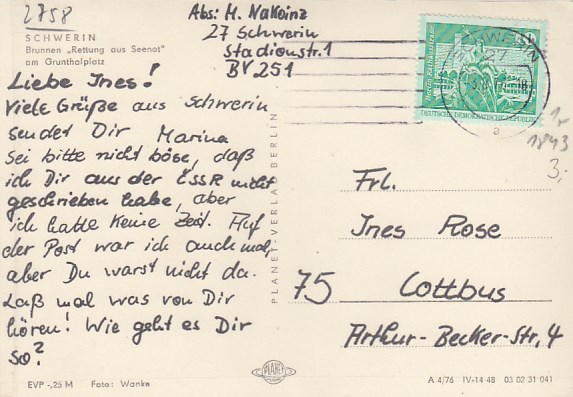 2758
SCHWERIN
Brunnen „Rettung aus Seenot"
am Grunthalplatz
Abs: M. Nakoinz
27 Schwerin
Stadionstr. 1
BV 251
Liebe Ines!
Viele Grüße aus Schwerin
sendet Dir Marina
Sei bitte nicht böse, daß
ich Dir aus der ČSSR nicht
geschrieben habe, aber
ich hatte keine Zeit. Auf
der Post war ich auch mal,
aber Du warst nicht da.
Laß mal was von Dir
hören! Wie geht es Dir
so?
EVP -,25 M Foto: Wanke
PLANET-VERLAG BERLIN
PLANET
SCHWERIN
27
a
DEUTSCHE DEMOKRATISCHE REPUBLIK
1843
3,-
Frl.
Ines Rose
75 Cottbus
Arthur-Becker-Str. 4
A 4/76 IV-14-48 03 02 31 041